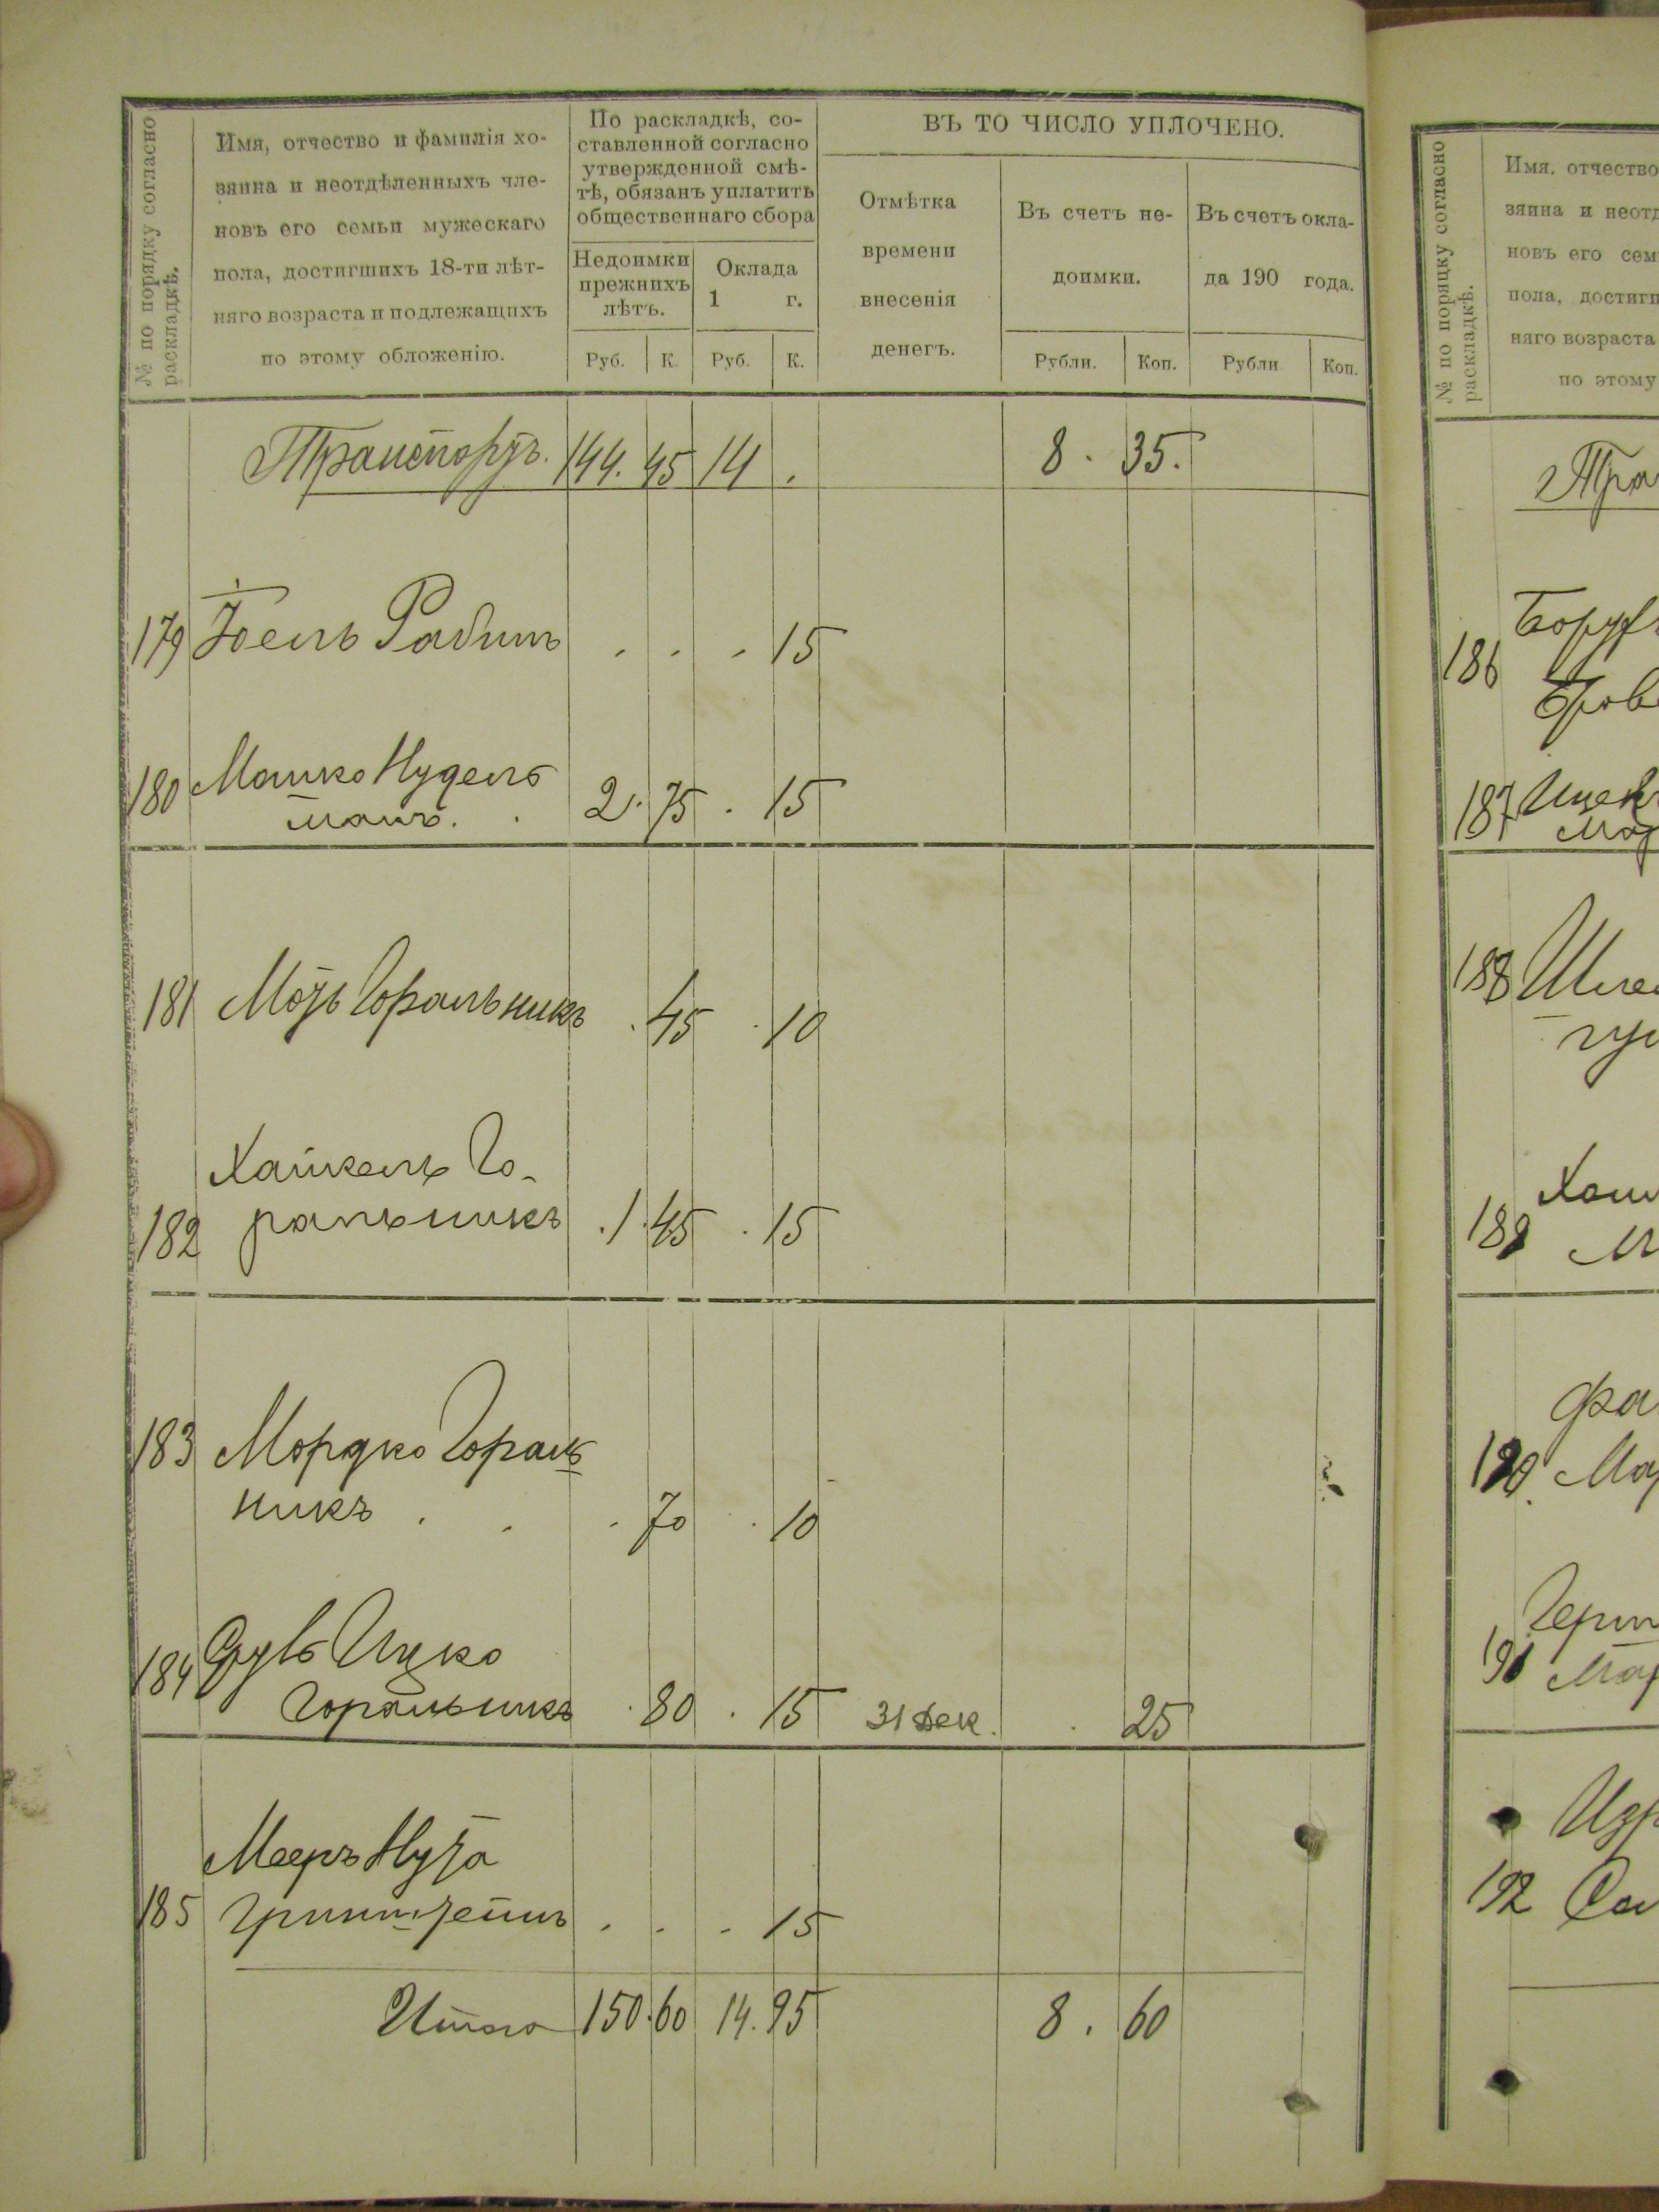 № по порядку согласно
раскладкѣ.
Имя, отчество и фамилія хо-
зяина и неотдѣленныхъ чле-
новъ его семьи мужескаго
пола, достигшихъ 18-ти лѣт-
няго возраста и подлежащихъ
по этому обложенію.
По раскладкѣ, со-
ставленной согласно
утвержденной смѣ-
тѣ, обязанъ уплатить
общественнаго сбора
Недоимки
прежнихъ
лѣтъ.
Оклада
1 г.
Руб. К. Руб. К.
ВЪ ТО ЧИСЛО УПЛОЧЕНО.
Отмѣтка
времени
внесенія
денегъ.
Въ счетъ не-
доимки.
Въ счетъ окла-
да 190 года.
Рубли. Коп. Рубли Коп.
Транспортъ. 144. 45 14 . 8 . 35.
179 Іоель Рабинъ . . . 15
180 Мошко Нудель
манъ. . 2. 75 . 15
181 Мотъ Горальникъ . 45 . 10
Хаткель Го-
182 ральникъ . 1. 45 . 15
183 Мордко Гораль
никъ . . . 70 . 10
184 Идко
Горальникъ . 80 . 15 31 Дек. . 25
Мееръ Нута
185 Гринштейнъ . . . 15
Итого 150. 60 14. 95 8 . 60
№ по порядку согласно
раскладкѣ.
Имя. отчество
зяина и неотд
новъ его сем
пола, достигш
няго возраста
по этому
Тра
Борух
186
Бров
187 Ицек
Мар
188 Шле
Хаи
189
Фа
190. Мар
Герш
191 Мар
Изр
192